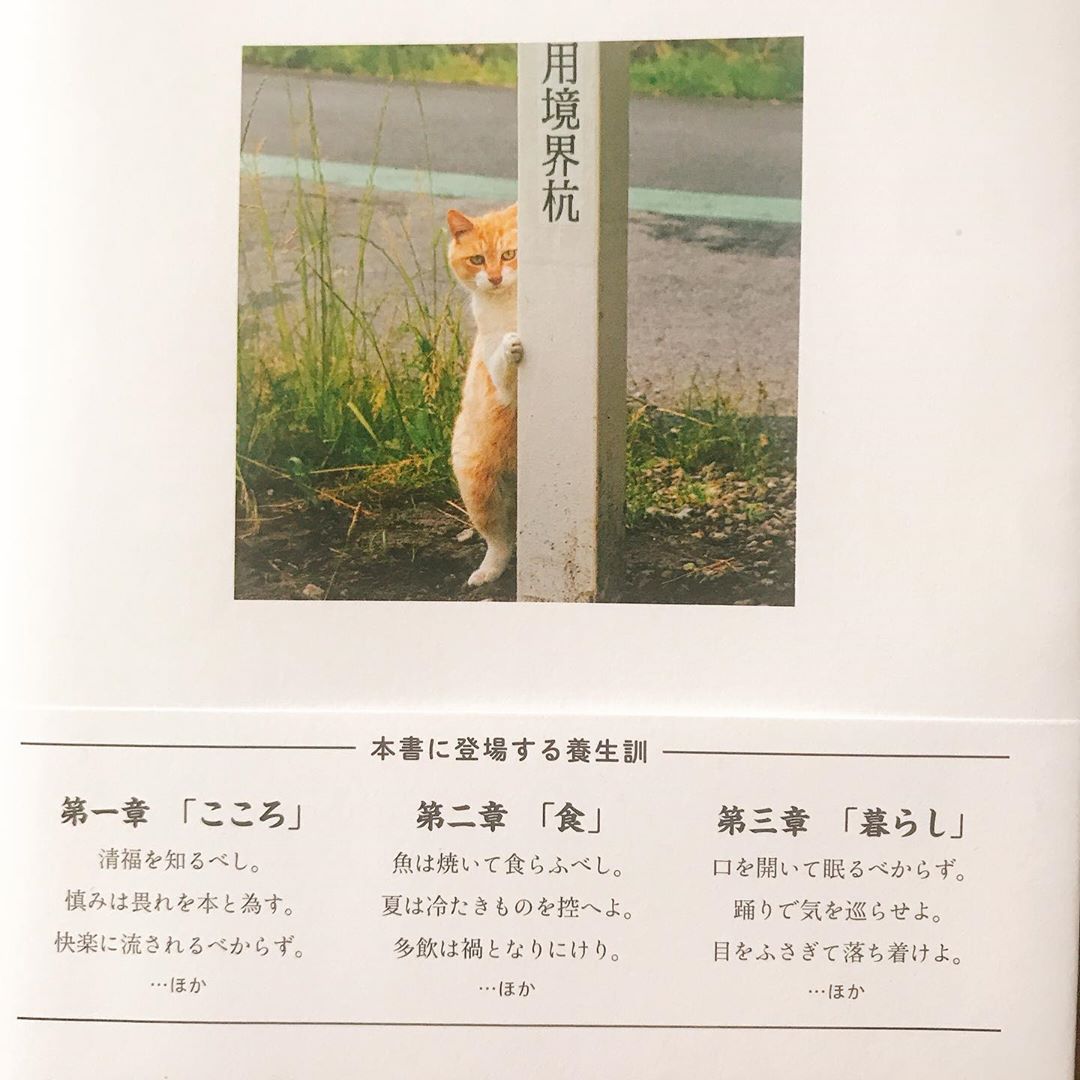 用境界杭
本書に登場する養生訓
第一章 「こころ」
清福を知るべし。
慎みは畏れを本と為す。
快楽に流されるべからず。
…ほか
第二章 「食」
魚は焼いて食らふべし。
夏は冷たきものを控へよ。
多飲は禍となりにけり。
…ほか
第三章 「暮らし」
口を開いて眠るべからず。
踊りで気を巡らせよ。
目をふさぎて落ち着けよ。
…ほか